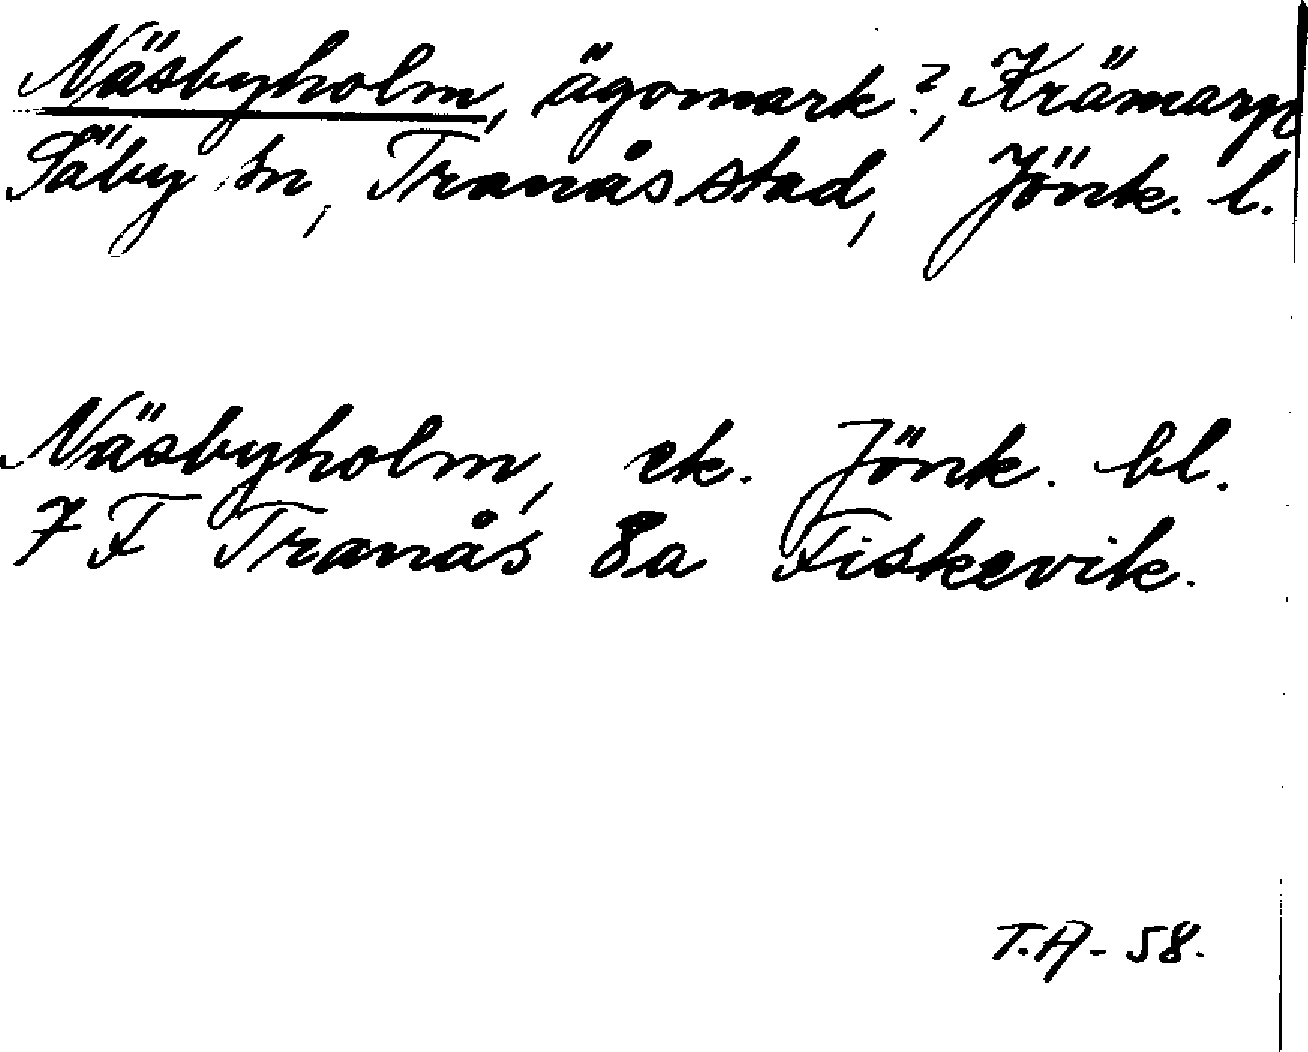 Näsbyholm, ägomark?, Krämarp
Säby sn, Tranås stad, Jönk. l.
Näsbyholm, ek. Jönk. bl.
7 F Tranås 8a Fiskevik.
T.A - 58.